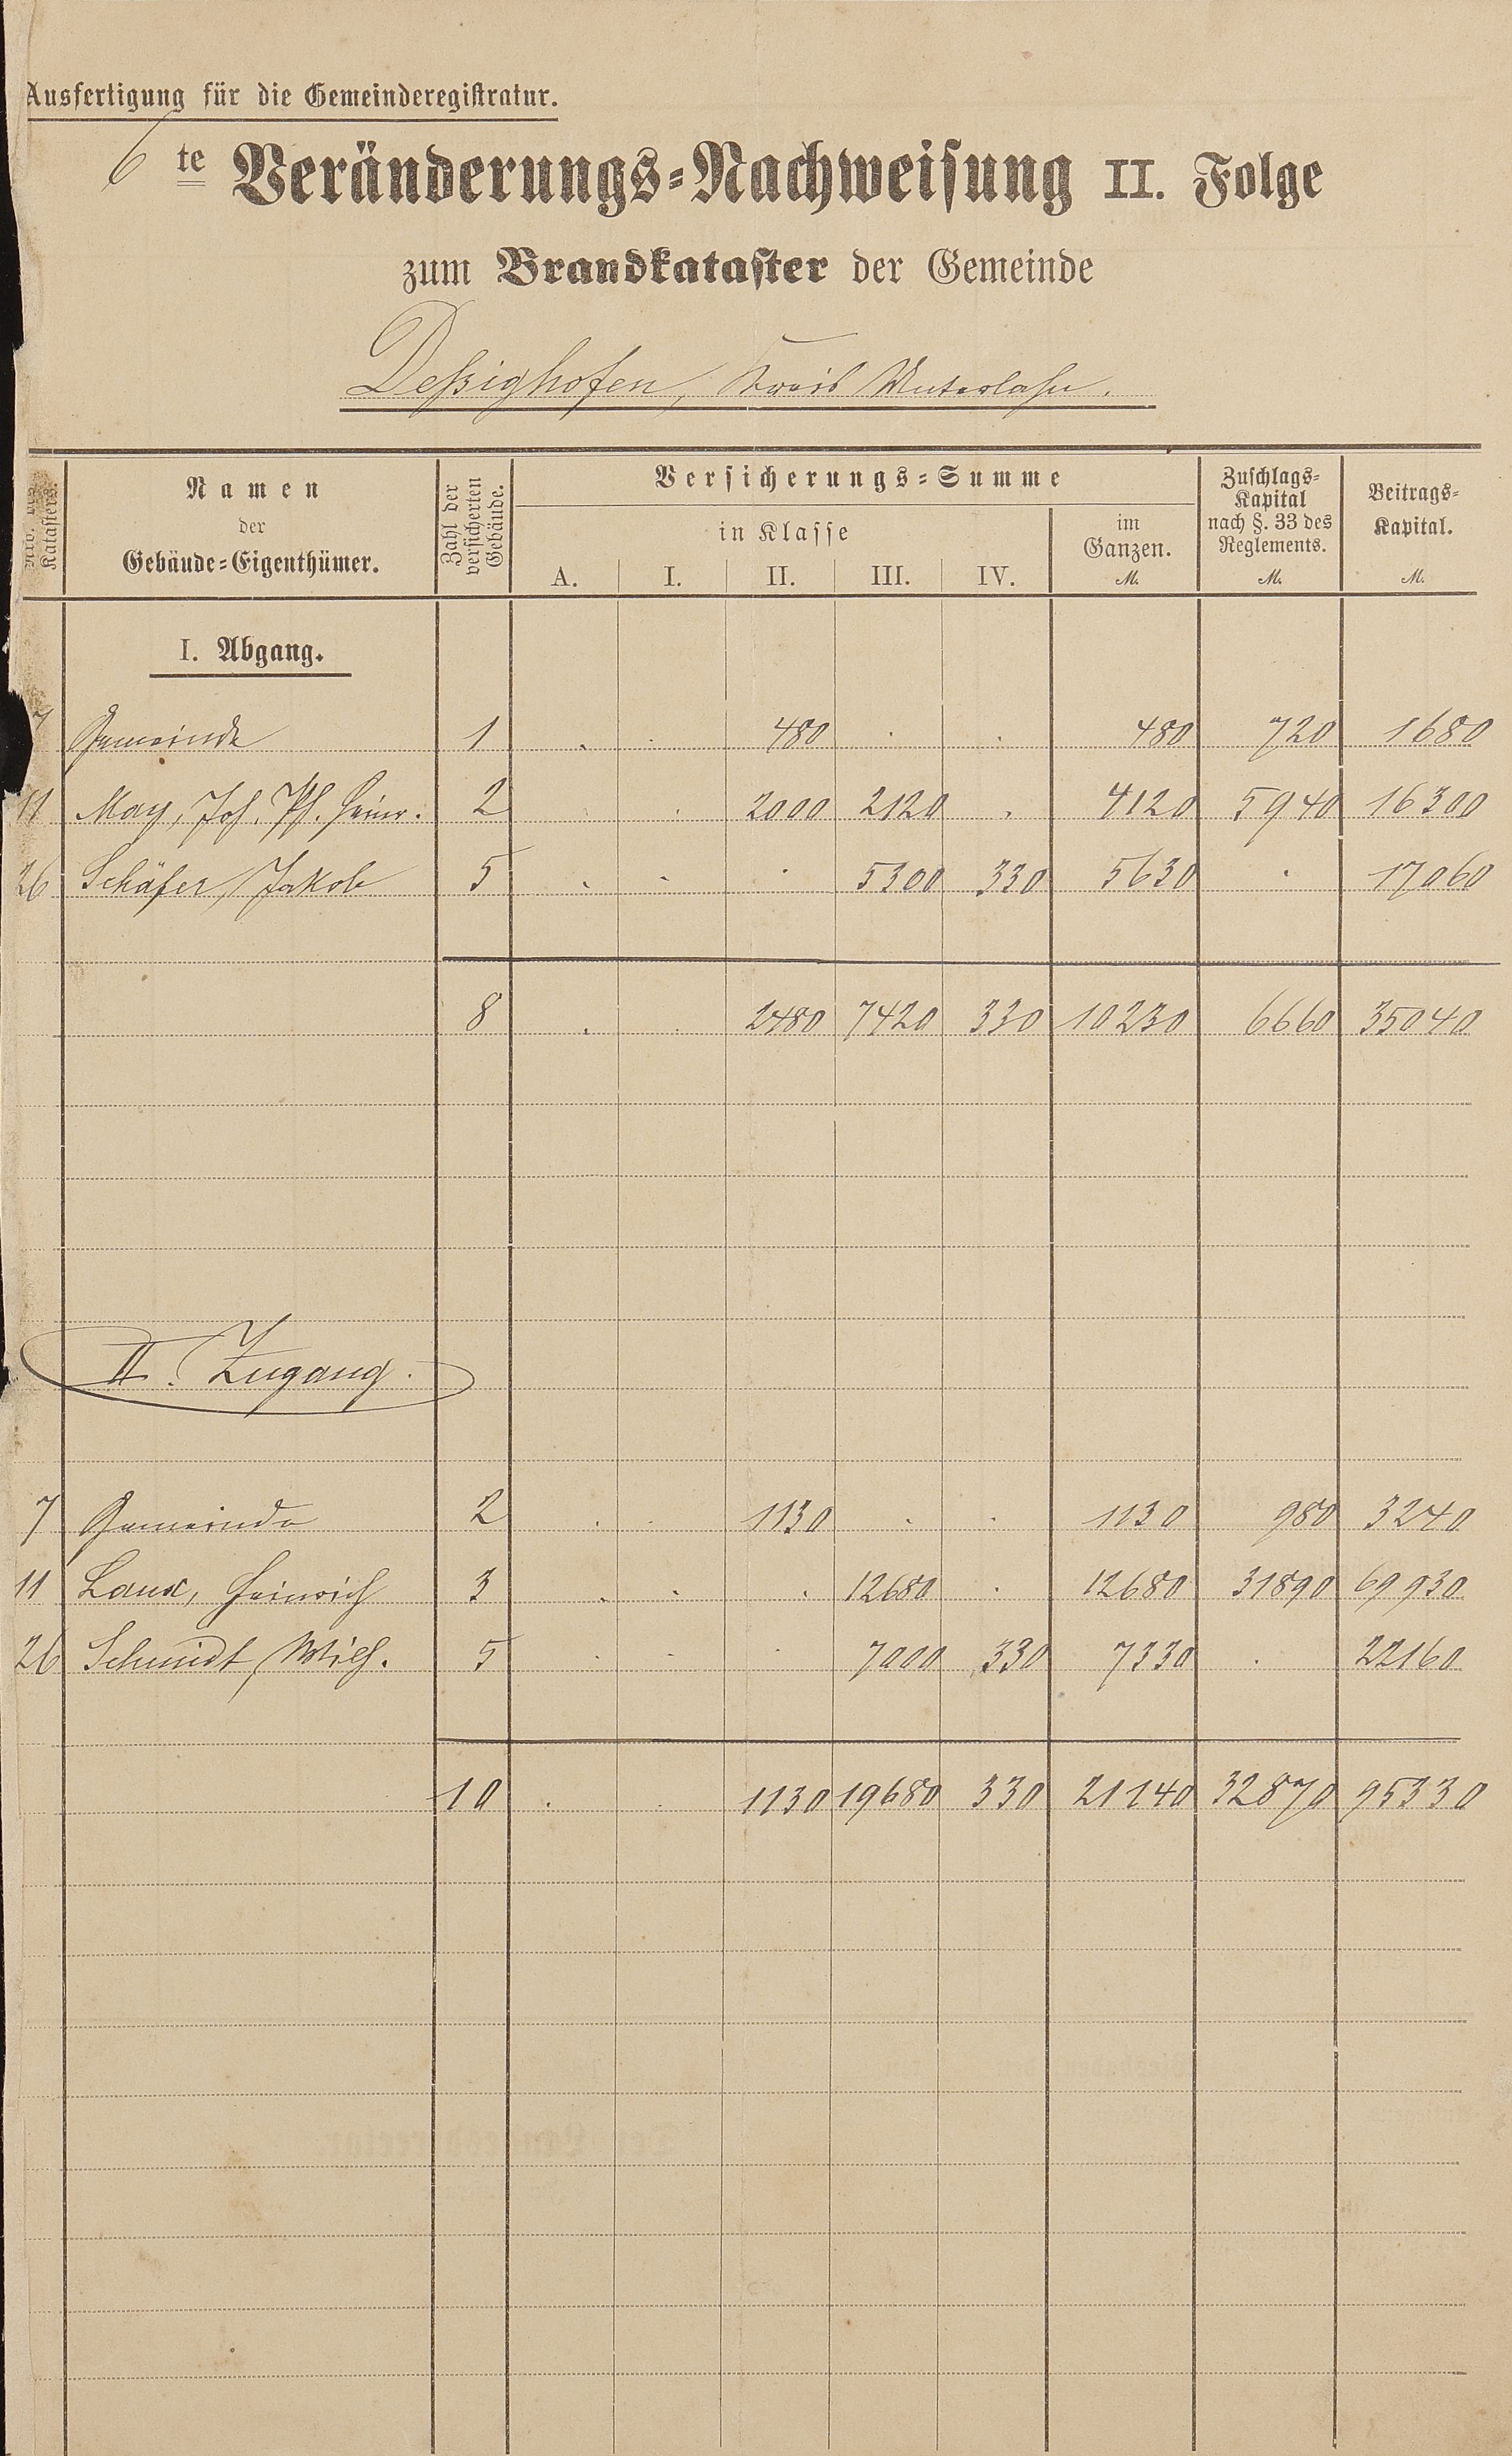 Ausfertigung für die Gemeinderegistratur.
6te Veränderungs-Nachweisung II. Folge
zum Brandkataster der Gemeinde
Deßighofen, Kreis Unterlahn.
Nro. des Katasters. Namen der Gebäude-Eigenthümer. Zahl der versicherten Gebäude. Versicherungs-Summe in Klasse A. I. II. III. IV. im Ganzen. M. Zuschlags-Kapital nach §. 33 des Reglements. M. Beitrags-Kapital. M.
I. Abgang.
7 Gemeinde 1 . . 480 . . 480 720 1680
11 May, Joh. Ph. Heinr. 2 . . 2000 2120 . 4120 5940 16300
26 Schäfer, Jakob 5 . . . 5300 330 5630 . 17060
8 . . 2480 7420 330 10230 6660 35040
II. Zugang.
7 Gemeinde 2 . . 1130 . . 1130 980 3240
11 Laux, Heinrich 3 . . . 12680 . 12680 31890 69930
26 Schmidt, Wilh. 5 . . . 7000 330 7330 . 22160
10 . . 1130 19680 330 21140 32870 95330